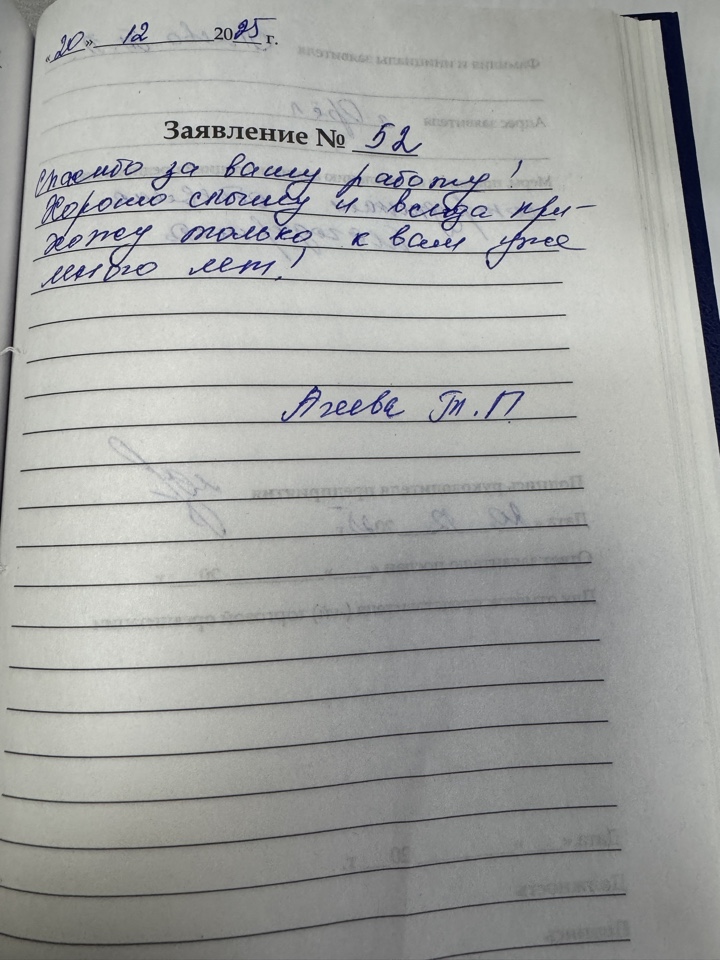 «20» 12 2025 г.
Заявление № 52
Спасибо за вашу работу!
Хорошо слышу и всегда при-
хожу только к вам уже
много лет!
Агеева Т. П